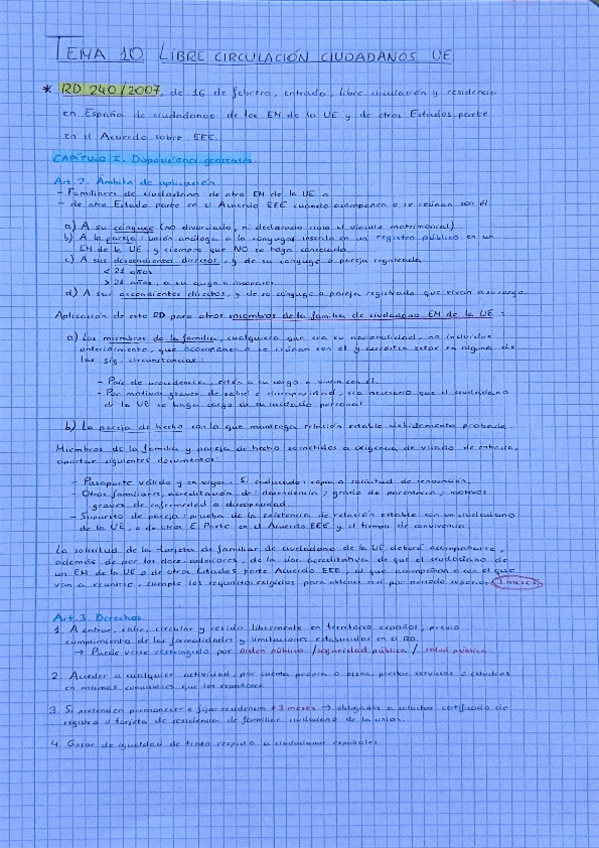 TEMA 10 LIBRE CIRCULACIÓN CIUDADANOS UE
* RD 240/2007, de 16 de febrero, entrada, libre circulación y residencia
en España de ciudadanos de los EM de la UE y de otros Estados parte
en el Acuerdo sobre EEE.
CAPÍTULO I. Disposiciones generales.
Art. 2. Ámbito de aplicación
- Familiares de ciudadano de otro EM de la UE o
- de otro Estado parte en el Acuerdo EEE cuando acompañen o se reúnan con él
a) A su cónyuge (no divorciado, ni declarado nulo el vínculo matrimonial)
b) A la pareja: unión análoga a la conyugal inscrita en un registro público en un
EM de la UE, y siempre que NO se haya cancelado
c) A sus descendientes directos, y de su cónyuge o pareja registrada
< 21 años
> 21 años, a su cargo o incapaces
d) A sus ascendientes directos, y de su cónyuge o pareja registrada que vivan a su cargo
Aplicación de este RD para otros miembros de la familia de ciudadano EM de la UE:
a) Los miembros de la familia, cualquiera que sea su nacionalidad, no incluidos
anteriormente, que acompañen o se reúnan con él y acrediten estar en alguna de
las sig. circunstancias:
- País de procedencia, estén a su cargo o vivan con él.
- Por motivos graves de salud o discapacidad, sea necesario que el ciudadano
de la UE se haga cargo de su cuidado personal
b) La pareja de hecho con la que mantenga relación estable debidamente probada.
Miembros de la familia y pareja de hecho sometidos a exigencia de visado de entrada,
aportar siguientes documentos:
- Pasaporte válido y en vigor. Si caducado: copia o solicitud de renovación.
- Otros familiares, acreditación de: dependencia; grado de parentesco; motivos
graves de enfermedad o discapacidad.
- Supuesto de pareja: prueba de la existencia de relación estable con un ciudadano
de la UE, o de otros E. Parte en el Acuerdo EEE y el tiempo de convivencia.
La solicitud de la tarjeta de familiar de ciudadano de la UE deberá acompañarse,
además de por los docs. anteriores, de la doc. acreditativa de que el ciudadano de
un EM de la UE o de otros Estados parte Acuerdo EEE, al que acompañan o con el que
van a reunirse, cumple los requisitos exigidos para obtener por periodo superior 3 meses
Art. 3. Derechos
1. A entrar, salir, circular y residir libremente en territorio español, previo
cumplimiento de las formalidades y limitaciones establecidas en el RD.
→ Puede verse restringido por orden público / seguridad pública / salud pública.
2. Acceder a cualquier actividad, por cuenta propia o ajena, prestar servicios o estudios
en mismas condiciones que los españoles.
3. Si pretenden permanecer o fijar residencia + 3 meses → obligados a solicitar certificado de
registro o tarjeta de residencia de familiar ciudadano de la unión.
4. Gozar de igualdad de trato respecto a ciudadanos españoles